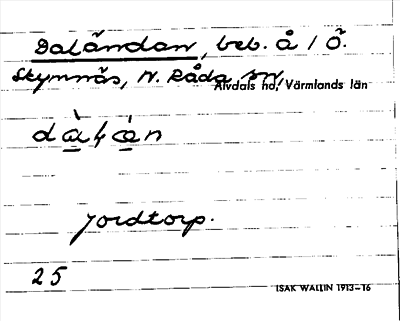 Daländan, beb. å 1 Ö.
Skymnäs, N. Råda sn,
Älvdals hd, Värmlands län
Jordtorp.
25
ISAK WALLIN 1913–16